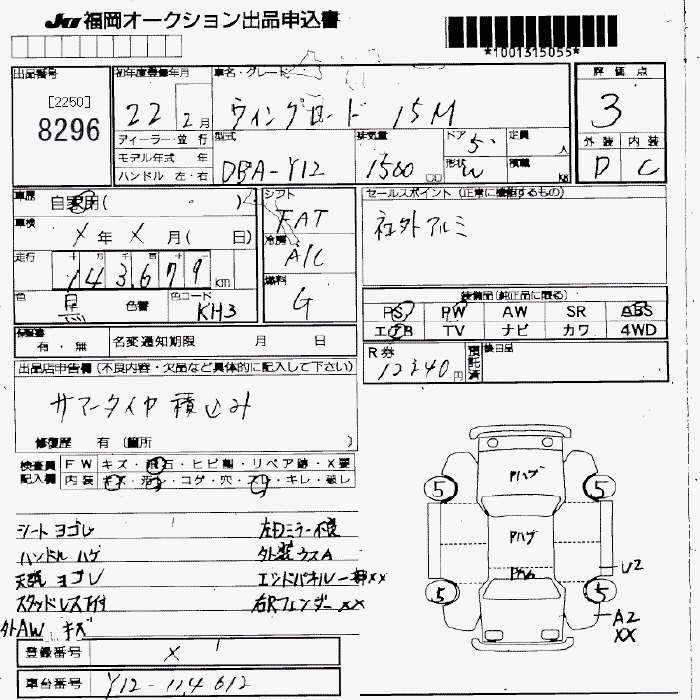 JU 福岡オークション出品申込書
*1001315055*
出品番号 初年度登録年月 車名・グレード 評価点
[2250]
8296
22年 2月 ウィングロード 15M 3
ディーラー・並行 型式 排気量 ドア 定員 外装 内装
モデル年式 年 5 人 D C
ハンドル 左・右 DBA-Y12 1500 cc 形状 W 積載 kg
車歴 自家用( ) シフト セールスポイント(正常に機能するもの)
FAT 社外アルミ
車検 X年 X月( 日) 冷房
A/C
走行 十 万 千 百 十 一
143679 km 燃料
G
色 黒 色替 色コード KH3
装備品(純正品に限る)
PS PW AW SR ABS
エアB TV ナビ カワ 4WD
保証書 有・無 名変通知期限 月 日
R券 12340円 預託済 後日品
出品店申告欄(不良内容・欠品など具体的に記入して下さい)
サマータイヤ積込み
修復歴 有(箇所 )
検査員 FW キズ・飛石・ヒビ・リペア跡・X要
記入欄 内装 キズ・汚れ・コゲ・穴・スレ・キレ・破レ
Pハゲ
5 5
Pハゲ
Pハゲ
U2
5 5
A2
XX
シートヨゴレ 左ドミラー不良
ハンドルハゲ 外装ウスA
天張ヨゴレ エンドパネル一部XX
スタッドレス付 右Rフェンダー XX
外AW キズ
登録番号 X
車台番号 Y12-114612